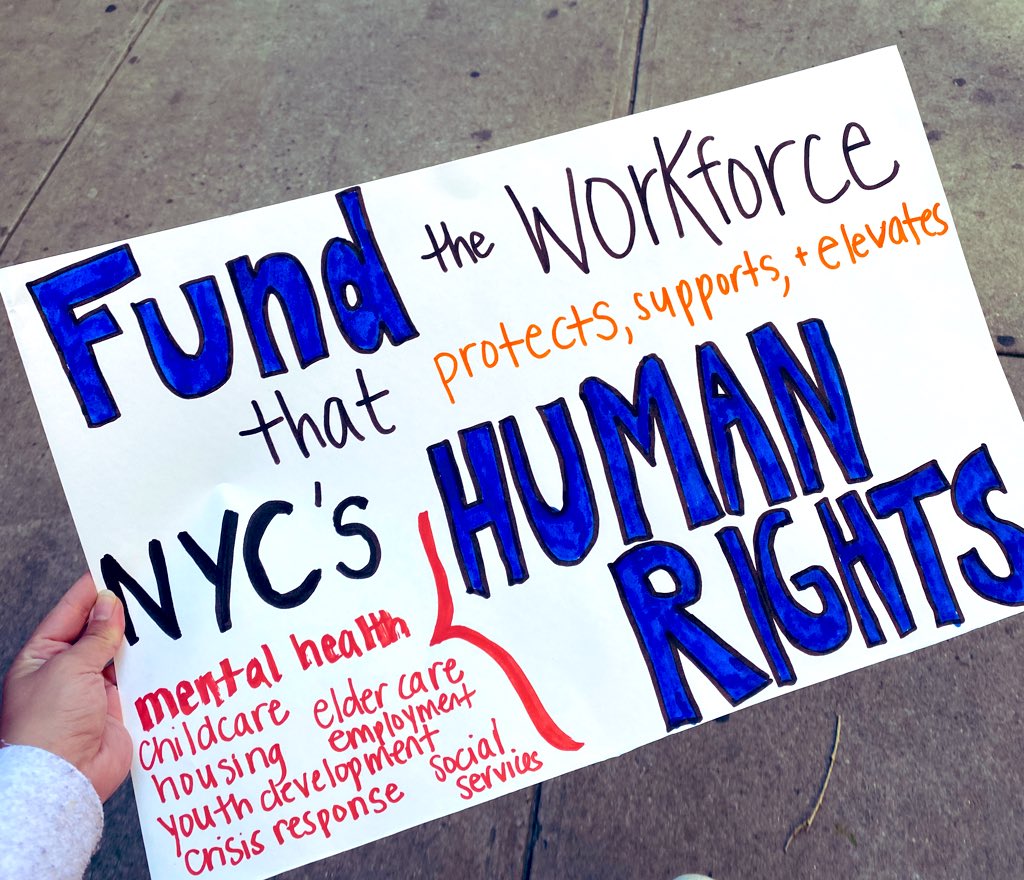 Fund the Workforce
that protects, supports, + elevates
NYC's HUMAN
RIGHTS
mental health
childcare elder care
housing employment
youth development social
crisis response services